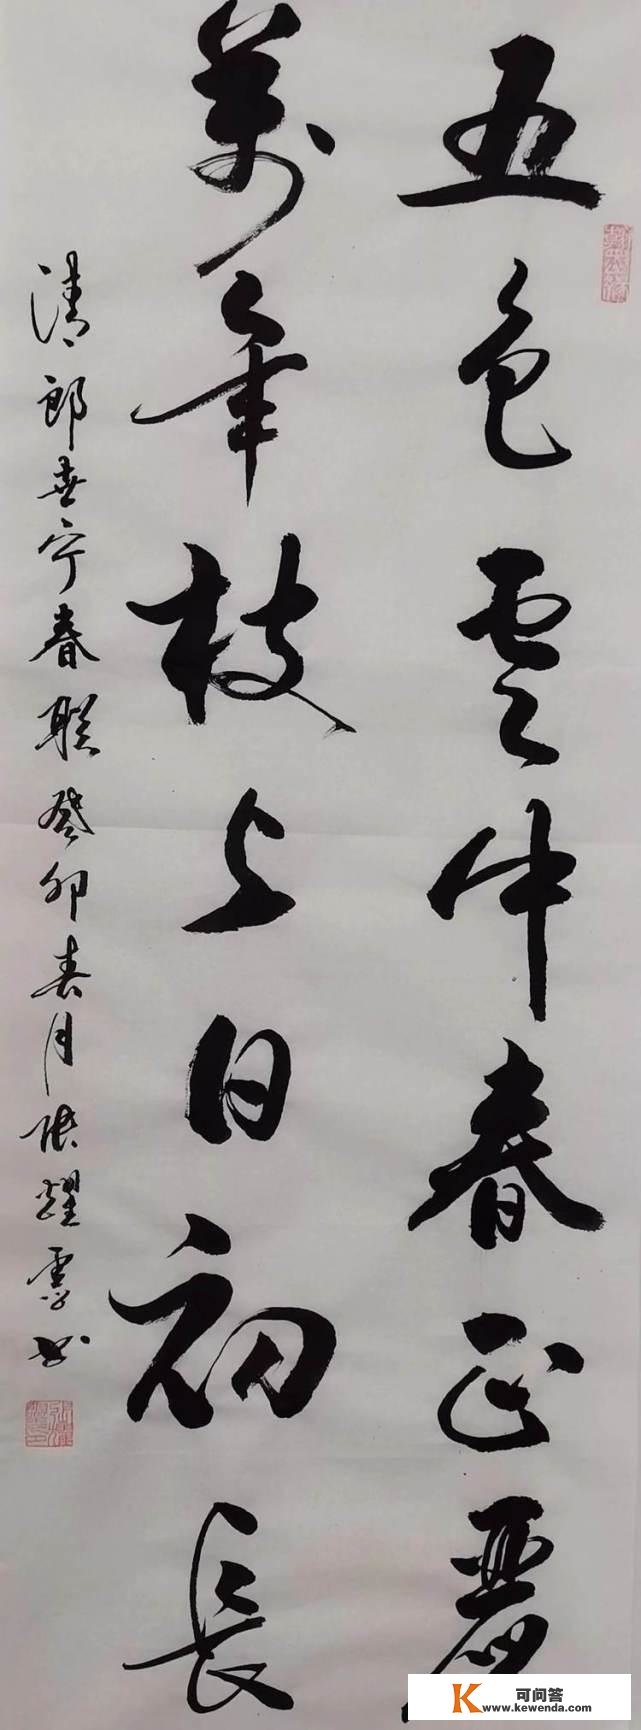 五色雲中春正麗
萬年枝上日初長
清郎世宁春联癸卯春月张耀霖书
可问答
www.kewenda.com